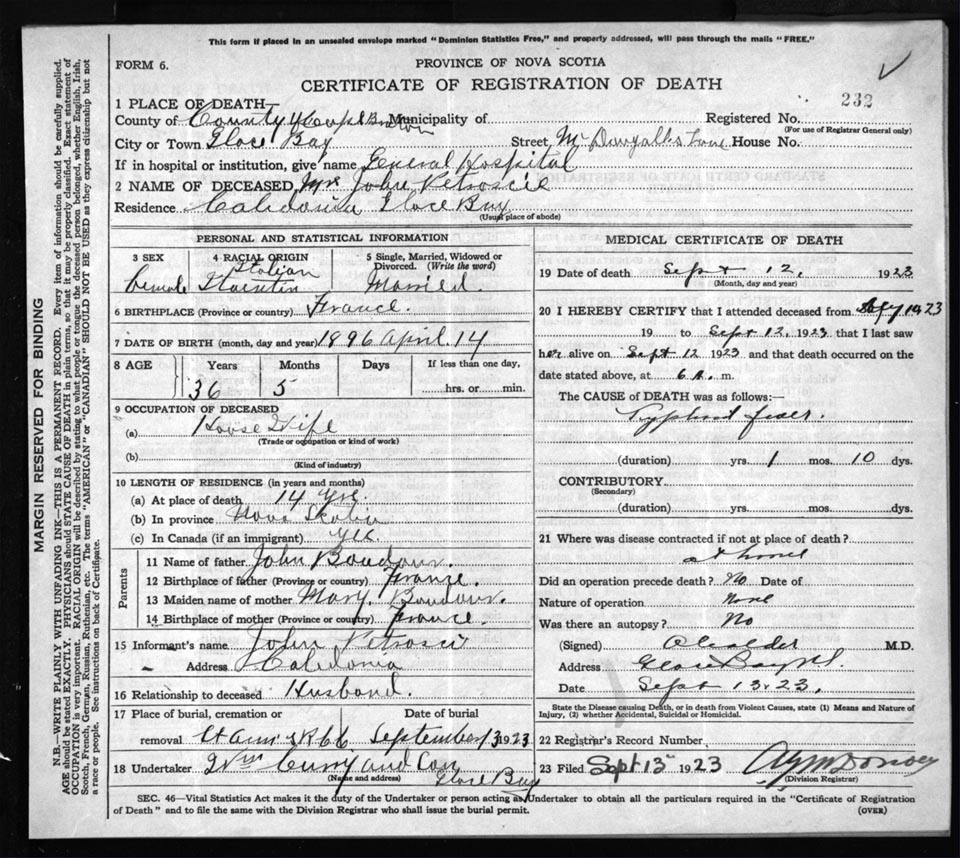 This form if placed in an unsealed envelope marked "Dominion Statistics Free," and properly addressed, will pass through the mails "FREE."
FORM 6.
PROVINCE OF NOVA SCOTIA
CERTIFICATE OF REGISTRATION OF DEATH
232
1 PLACE OF DEATH—
County of County of Cape Breton Municipality of Registered No.
(For use of Registrar General only)
City or Town Glace Bay Street House No.
If in hospital or institution, give name General Hospital
2 NAME OF DECEASED Mrs John Petroscie
Residence Caledonia Glace Bay
(Usual place of abode)
PERSONAL AND STATISTICAL INFORMATION
3 SEX 4 RACIAL ORIGIN 5 Single, Married, Widowed or Divorced. (Write the word)
Italian
Female Married.
6 BIRTHPLACE (Province or country) France.
7 DATE OF BIRTH (month, day and year) 1896 April 14
8 AGE Years Months Days If less than one day,
36 5 hrs. or min.
9 OCCUPATION OF DECEASED
(a) House Wife
(Trade or occupation or kind of work)
(b)
(Kind of industry)
10 LENGTH OF RESIDENCE (in years and months)
(a) At place of death 14 yrs.
(b) In province Nova Scotia
(c) In Canada (if an immigrant) yes.
Parents
11 Name of father John Boudour.
12 Birthplace of father (Province or country) France.
13 Maiden name of mother Mary. Boudour.
14 Birthplace of mother (Province or country) France.
15 Informant's name John Petroscie
Address Caledonia
16 Relationship to deceased Husband.
17 Place of burial, cremation or Date of burial
removal St Ann's September 13 1923
18 Undertaker Wm Curry and Son
(Name and address) Glace Bay
MEDICAL CERTIFICATE OF DEATH
19 Date of death Sept 12, 1923
(Month, day and year)
20 I HEREBY CERTIFY that I attended deceased from 1923
19 to Sept 12, 1923 that I last saw
her alive on Sept 12 1923 and that death occurred on the
date stated above, at 6 A. m.
The CAUSE of DEATH was as follows:—
Typhoid fever.
(duration) yrs. 1 mos. 10 dys.
CONTRIBUTORY
(Secondary)
(duration) yrs. mos. dys.
21 Where was disease contracted if not at place of death?
at home
Did an operation precede death? No Date of
Nature of operation None
Was there an autopsy? No
(Signed) M.D.
Address Glace Bay N.S.
Date Sept 13. 23.
State the Disease causing Death, or in death from Violent Causes, state (1) Means and Nature of
Injury, (2) whether Accidental, Suicidal or Homicidal.
22 Registrar's Record Number
23 Filed Sept 13th 1923
(Division Registrar)
SEC. 46—Vital Statistics Act makes it the duty of the Undertaker or person acting as Undertaker to obtain all the particulars required in the "Certificate of Registration
of Death" and to file the same with the Division Registrar who shall issue the burial permit.
(OVER)
MARGIN RESERVED FOR BINDING
N.B.—WRITE PLAINLY WITH UNFADING INK—THIS IS A PERMANENT RECORD. Every item of information should be carefully supplied.
AGE should be stated EXACTLY. PHYSICIANS should STATE CAUSE OF DEATH in plain terms, so that it may be properly classified. Exact statement of
OCCUPATION is very important. RACIAL ORIGIN will be described by stating to what people or tongue the deceased person belonged, whether English, Irish,
Scotch, French, German, Russian, Ruthenian, etc. The terms "AMERICAN" or "CANADIAN" SHOULD NOT BE USED as they express citizenship but not
a race or people. See instructions on back of Certificate.